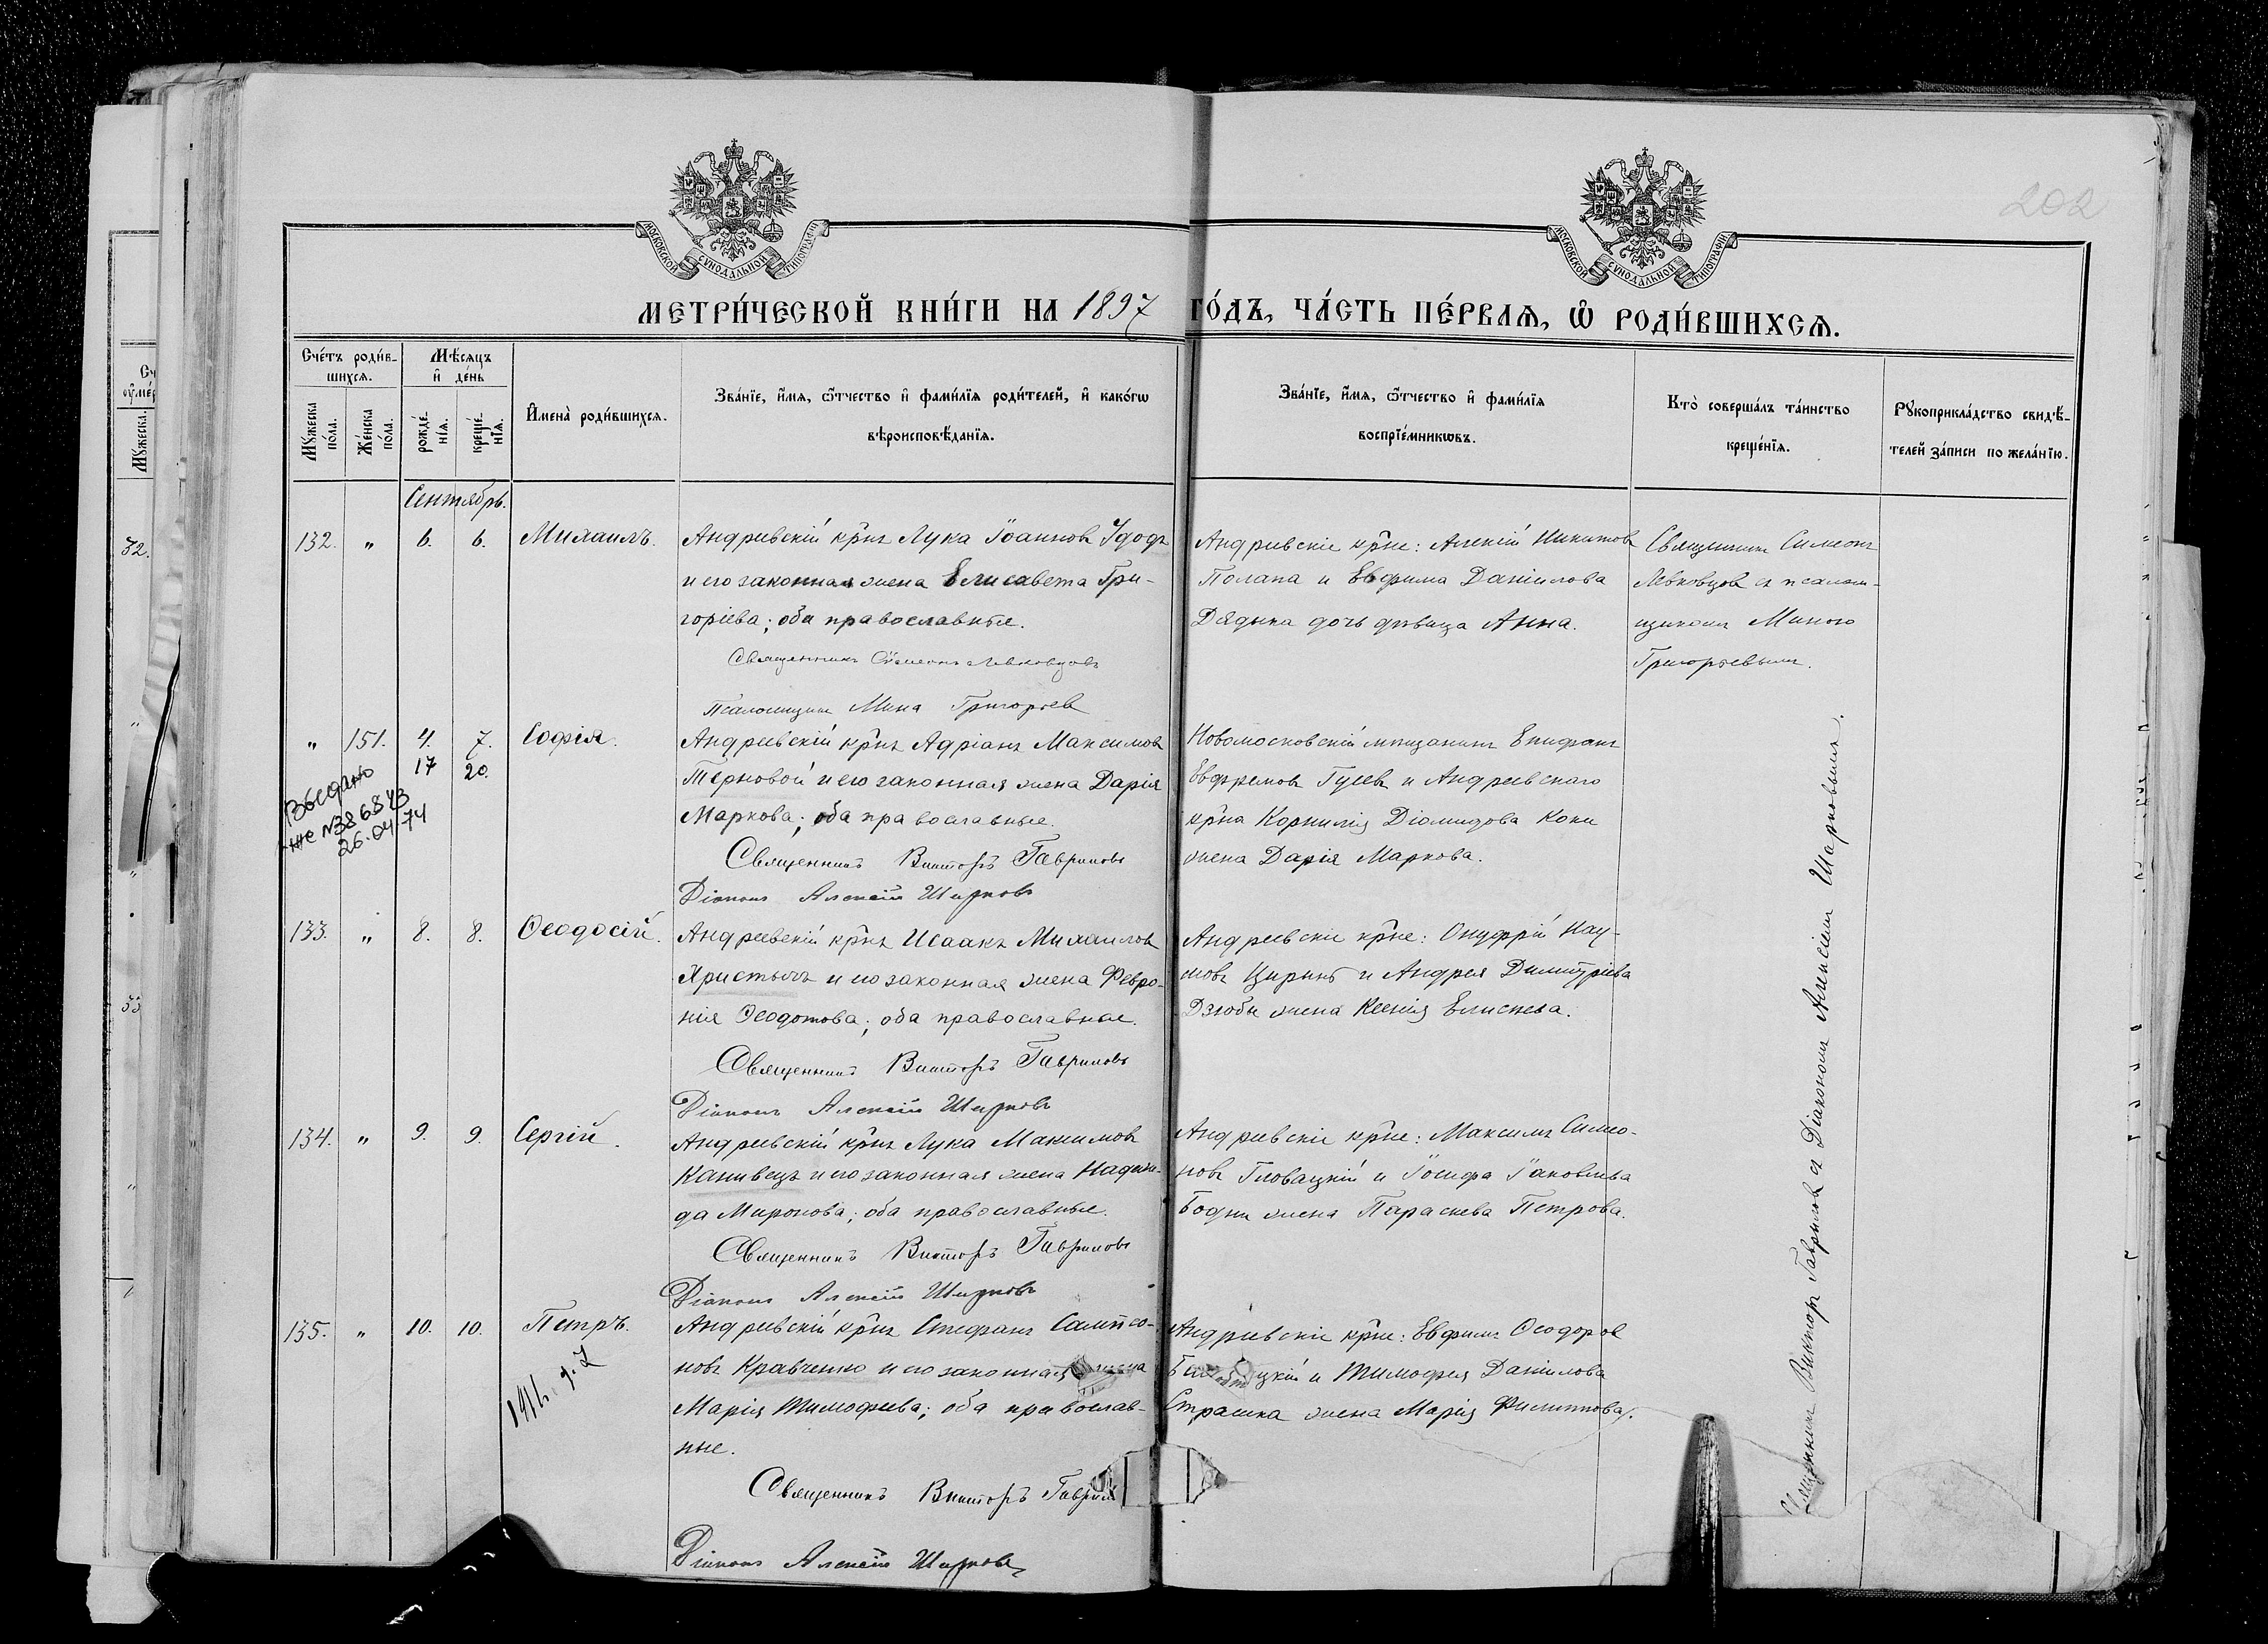 202
МОСКОВСКОЙ СѴНОДАЛЬНОЙ ТИПОГРАФІИ
МОСКОВСКОЙ СѴНОДАЛЬНОЙ ТИПОГРАФІИ
МЕТРИ́ЧЕСКОЙ КНИ́ГИ НА 1897 ГО́ДЪ, ЧА́СТЬ ПЕ́РВАѦ, Ѡ РОДИ́ВШИХСѦ.
Сче́тъ роди́в-
шихсѧ.
Мꙋ́жеска по́ла.
Же́нска по́ла.
Мѣ́сѧцъ
и҆ де́нь
рожде́-
нїѧ.
креще́-
нїѧ.
И҆мена̀ роди́вшихсѧ.
Зва́нїе, и҆́мѧ, ѻ҆́тчество и҆ фамѝлїѧ роди́телей, и҆ како́гѡ
вѣроисповѣ́данїѧ.
Зва́нїе, и҆́мѧ, ѻ҆́тчество и҆ фамѝлїѧ
воспрїе́мникѡвъ.
Кто̀ соверша́лъ та́инство
креще́нїѧ.
Рꙋкоприкла́дство свидѣ́-
телей за́писи по жела́нїю.
Сентябрь.
132. „ 6. 6. Михаилъ.
Андреевскій кр̃нъ Лука Іоанновъ Удодъ
и его законная жена Елисавета Гри-
горіева; оба православные.
Священникъ Сѵмеонъ Левковцовъ
Псаломщикъ Мина Григорьев
Андреевскіе кр̃не: Алексій Никитовъ
Полапа и Евфима Даніилова
Дядька дочь девица Анна.
Священникъ Симеонъ
Левковцовъ съ псалом-
щикомъ Миною
Григорьевымъ.
„ 151. 4. 7. Софія.
17 20.
Выдано
26.04.74
Андреевскій кр̃нъ Адріанъ Максимовъ
Терновой и его законная жена Дарія
Маркова; оба православные.
Священникъ Викторъ Гавриловъ
Діаконъ Алексій Шарковъ
Новомосковскій мещанинъ Епифанъ
Евфремовъ Гусевъ и Андреевского
кр̃на Корнилія Діомидова Коки
жена Дарія Маркова.
133. „ 8. 8. Ѳеодосій.
Андреевскій кр̃нъ Исаакъ Михаиловъ
Христычъ и его законная жена Февро-
нія Ѳеодотова; оба православные.
Священникъ Викторъ Гавриловъ
Діаконъ Алексій Шарковъ
Андреевскіе кр̃не: Онуфрій Нау-
мовъ и Андрея Димитріева
Дзюбы жена Ксенія Елисеева.
134. „ 9. 9. Сергій.
Андреевскій кр̃нъ Лука Максимовъ
Канивецъ и его законная жена Надеж-
да Миронова; оба православные.
Священникъ Викторъ Гавриловъ
Діаконъ Алексій Шарковъ
Андреевскіе кр̃не: Максимъ Симео-
новъ Гловацкій и Іосифа Іаковлева
Бодни жена Параскева Петрова.
135. „ 10. 10. Петръ.
Андреевскій кр̃нъ Стефанъ Сампсо-
новъ Кравченко и его законная жена
Марія Тимофеева; оба православ-
ные.
Священникъ Викторъ Гаврил
Діаконъ Алексій Шарковъ
Андреевскіе кр̃не: Евфимъ Ѳеодоров
и Тимофея Даніилова
Страшка жена Марія Филиппова.
Священникъ Викторъ Гавриловъ съ Діакономъ Алексіемъ Шарковымъ.